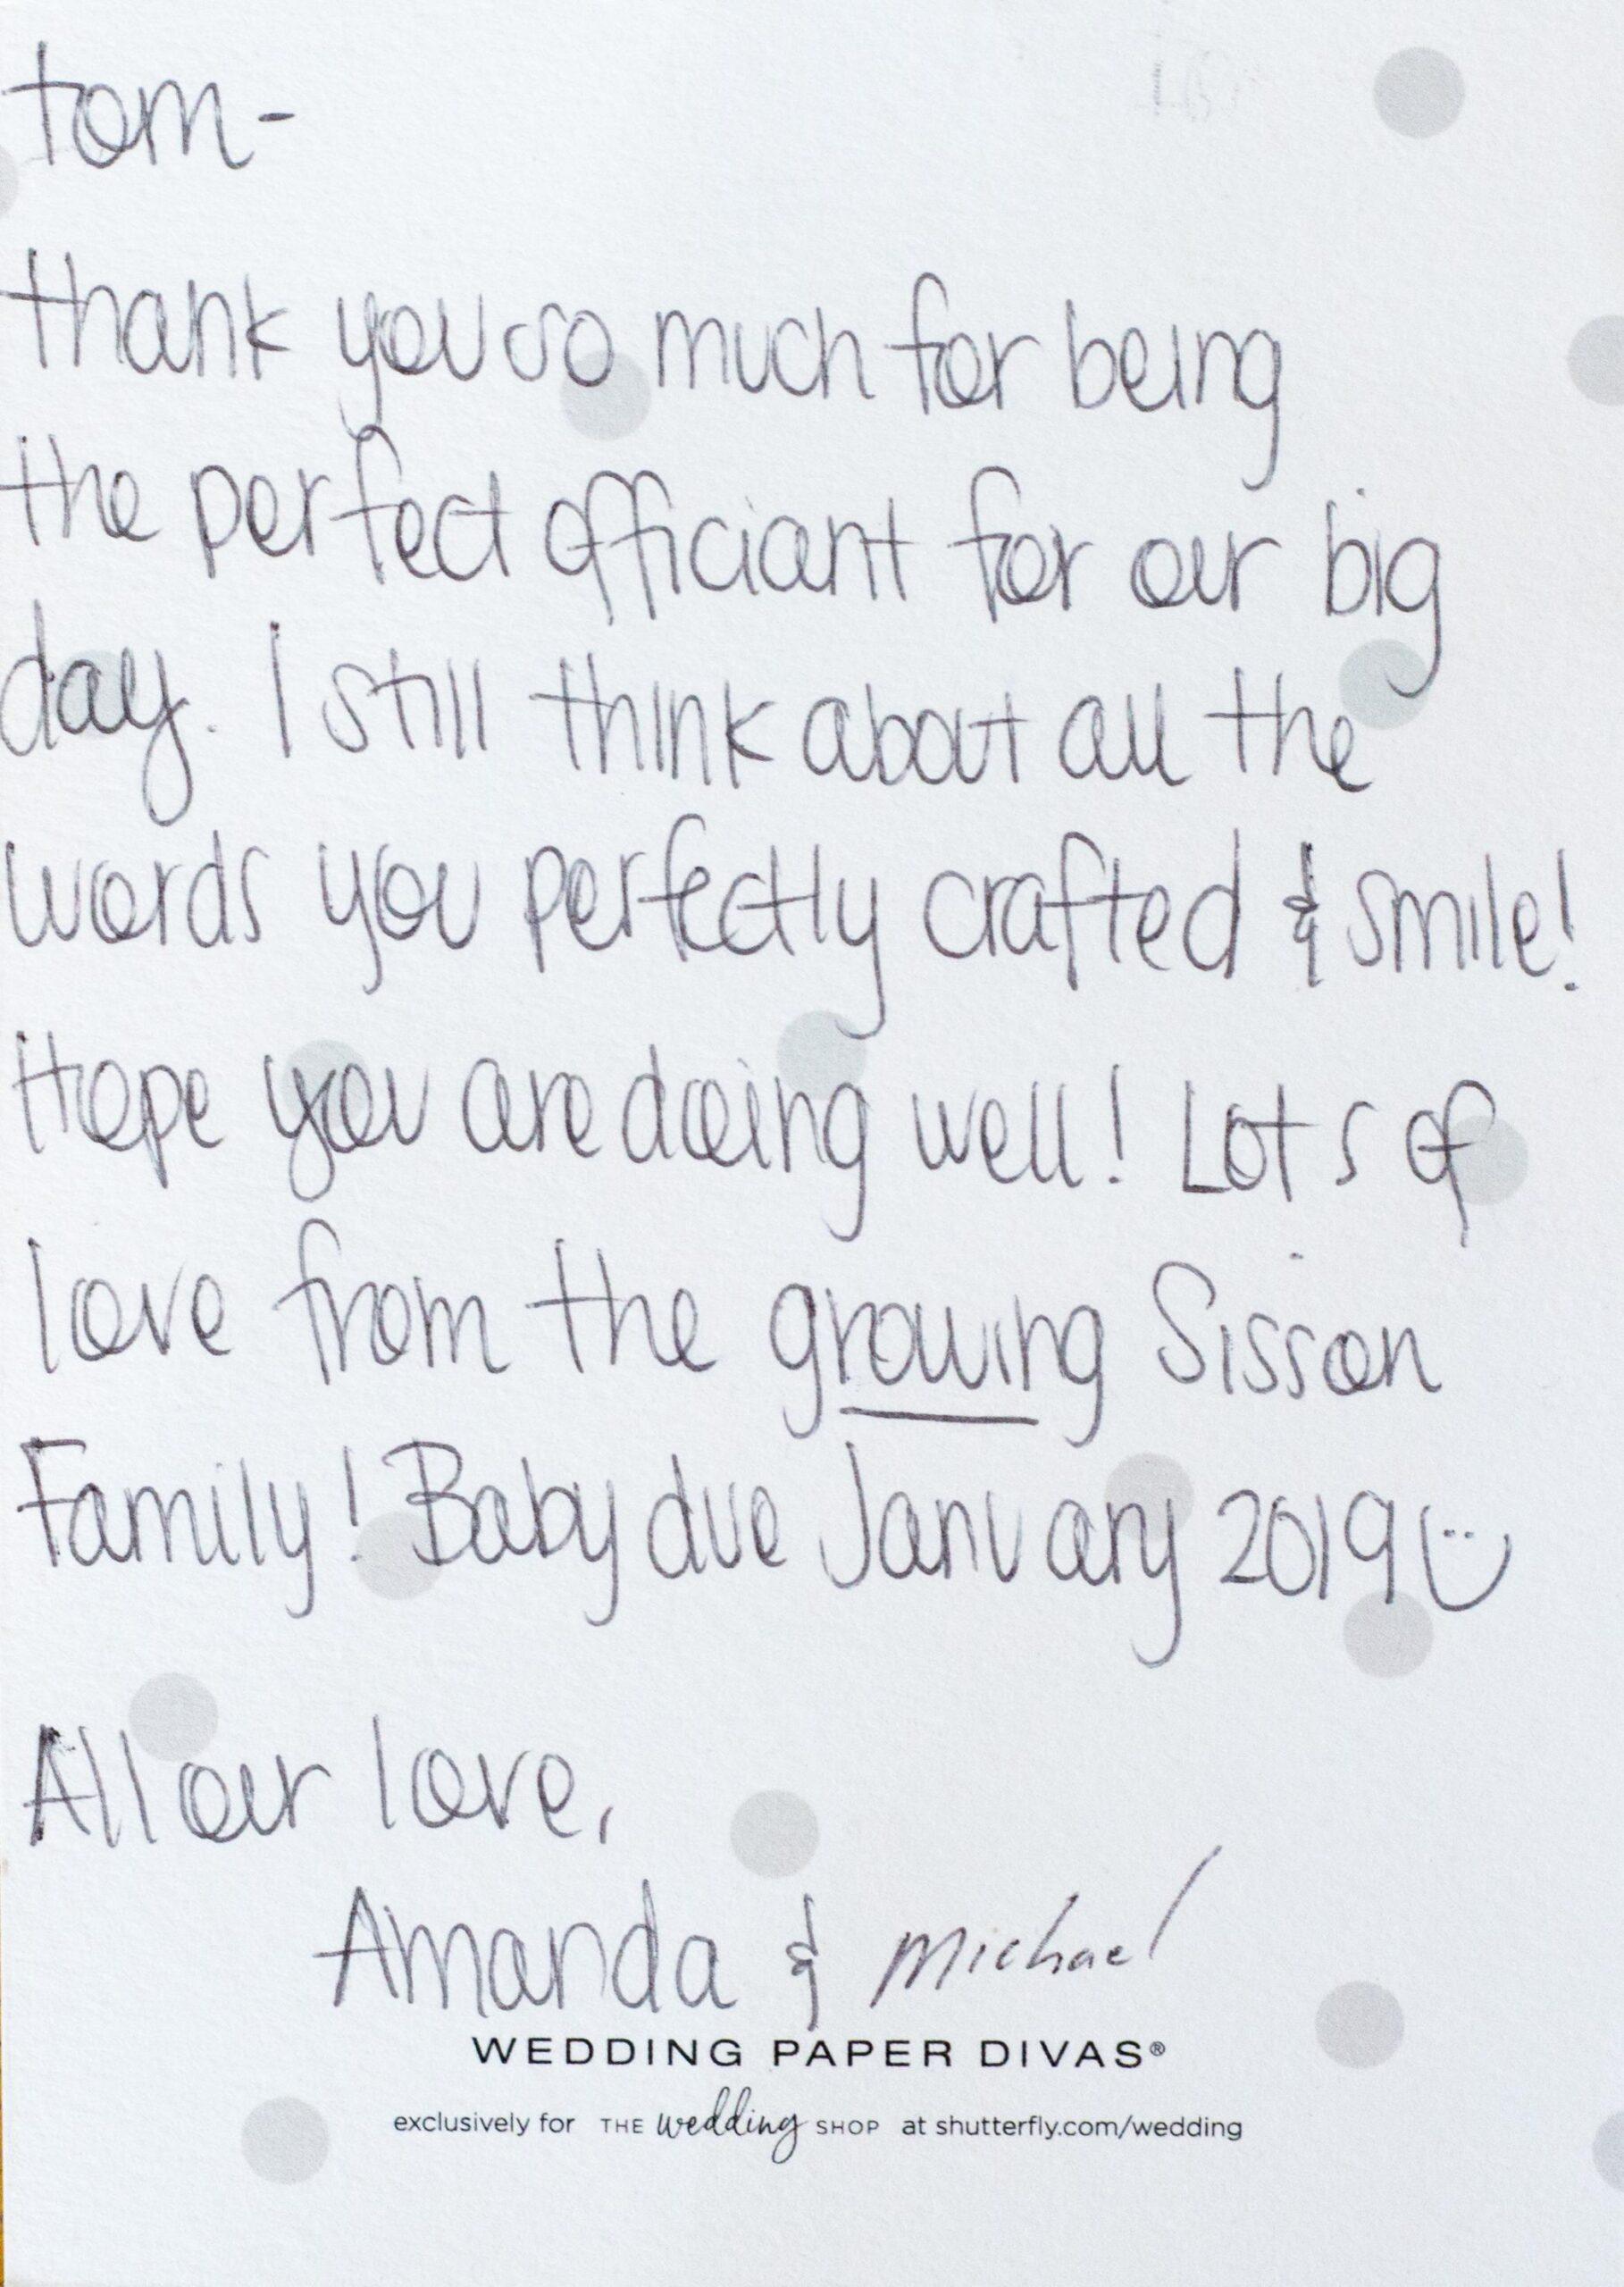 tom-
thank you so much for being
the perfect officiant for our big
day. I still think about all the
words you perfectly crafted & smile!
Hope you are doing well! Lots of
love from the growing Sisson
Family! Baby due January 2019 :)
All our love,
Amanda & Michael
WEDDING PAPER DIVAS®
exclusively for THE wedding SHOP at shutterfly.com/wedding